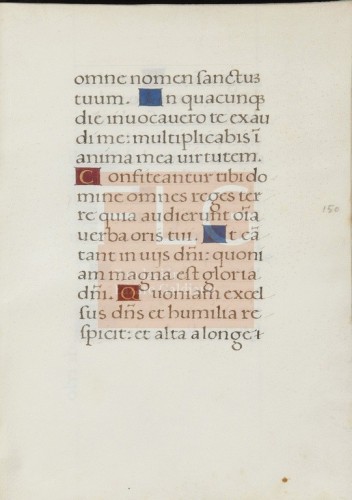 omne nomen sanctum
tuum. In quacunq;
die inuocauero te exau
di me: multiplicabis ī
anima mea uirtutem.
Confiteantur tibi do
mine omnes reges ter
re quia audierunt oīa
uerba oris tui. Et cā
tant in uijs dñi: quoni
am magna est gloria
dñi. Quoniam excel
sus dñs et humilia re
spicit: et alta a longe
150